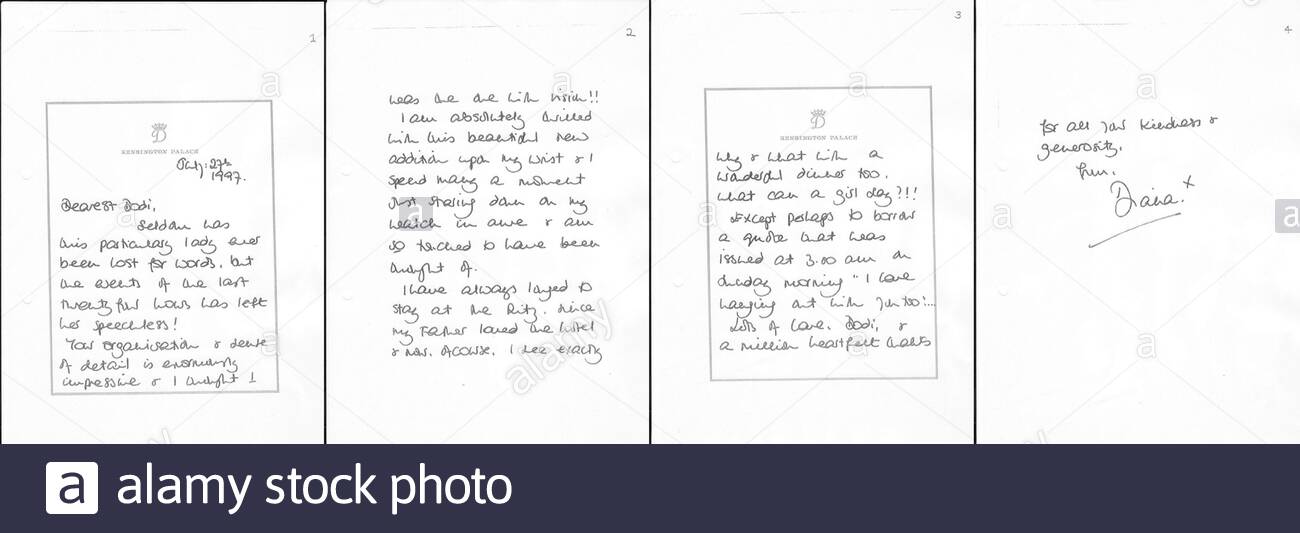 1
KENSINGTON PALACE
July: 27th
1997.
Dearest Dodi,
Seldom has
this particular lady ever
been lost for words, but
the events of the last
twenty four hours has left
her speechless!
Your organisation & sense
of detail is enormously
impressive & I thought I
2
was the one with vision!!
I am absolutely thrilled
with this beautiful new
addition upon my wrist & I
spend many a moment
just staring down on my
watch in awe & am
so touched to have been
thought of.
I have always longed to
stay at the Ritz. Since
my Father loved the hotel
& now, ofcourse, I see exactly
3
KENSINGTON PALACE
why & what with a
wonderful dinner too.
What can a girl say?!!
Except perhaps to borrow
a quote that was
issued at 3.00 am on
Sunday morning "I love
hanging out with you too!...
Lots of love, Dodi, &
a million heartfelt thanks
4
for all your kindness &
generosity,
from,
Diana. x
a alamy stock photo